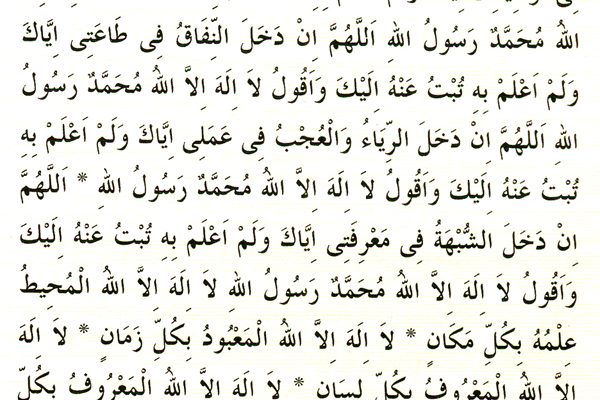 اللهُ مُحَمَّدٌ رَسُولُ اللهِ اَللَّهُمَّ اِنْ دَخَلَ النِّفَاقُ فِى طَاعَتِى اِيَّاكَ
وَلَمْ اَعْلَمْ بِهِ تُبْتُ عَنْهُ اِلَيْكَ وَاَقُولُ لاَ اِلَهَ اِلاَّ اللهُ مُحَمَّدٌ رَسُولُ
اللهِ اَللَّهُمَّ اِنْ دَخَلَ الرِّيَاءُ وَالْعُجْبُ فِى عَمَلِى اِيَّاكَ وَلَمْ اَعْلَمْ بِهِ
تُبْتُ عَنْهُ اِلَيْكَ وَاَقُولُ لاَ اِلَهَ اِلاَّ اللهُ مُحَمَّدٌ رَسُولُ اللهِ * اَللَّهُمَّ
اِنْ دَخَلَ الشُّبْهَةُ فِى مَعْرِفَتِى اِيَّاكَ وَلَمْ اَعْلَمْ بِهِ تُبْتُ عَنْهُ اِلَيْكَ
وَاَقُولُ لاَ اِلَهَ اِلاَّ اللهُ مُحَمَّدٌ رَسُولُ اللهِ لاَ اِلَهَ اِلاَّ اللهُ الْمُحِيطُ
عِلْمُهُ بِكُلِّ مَكَانٍ * لاَ اِلَهَ اِلاَّ اللهُ الْمَعْبُودُ بِكُلِّ زَمَانٍ * لاَ اِلَهَ
اِلاَّ اللهُ الْمَعْرُوفُ بِكُلِّ لِسَانٍ * لاَ اِلَهَ اِلاَّ اللهُ الْمَعْرُوفُ بِكُلِّ